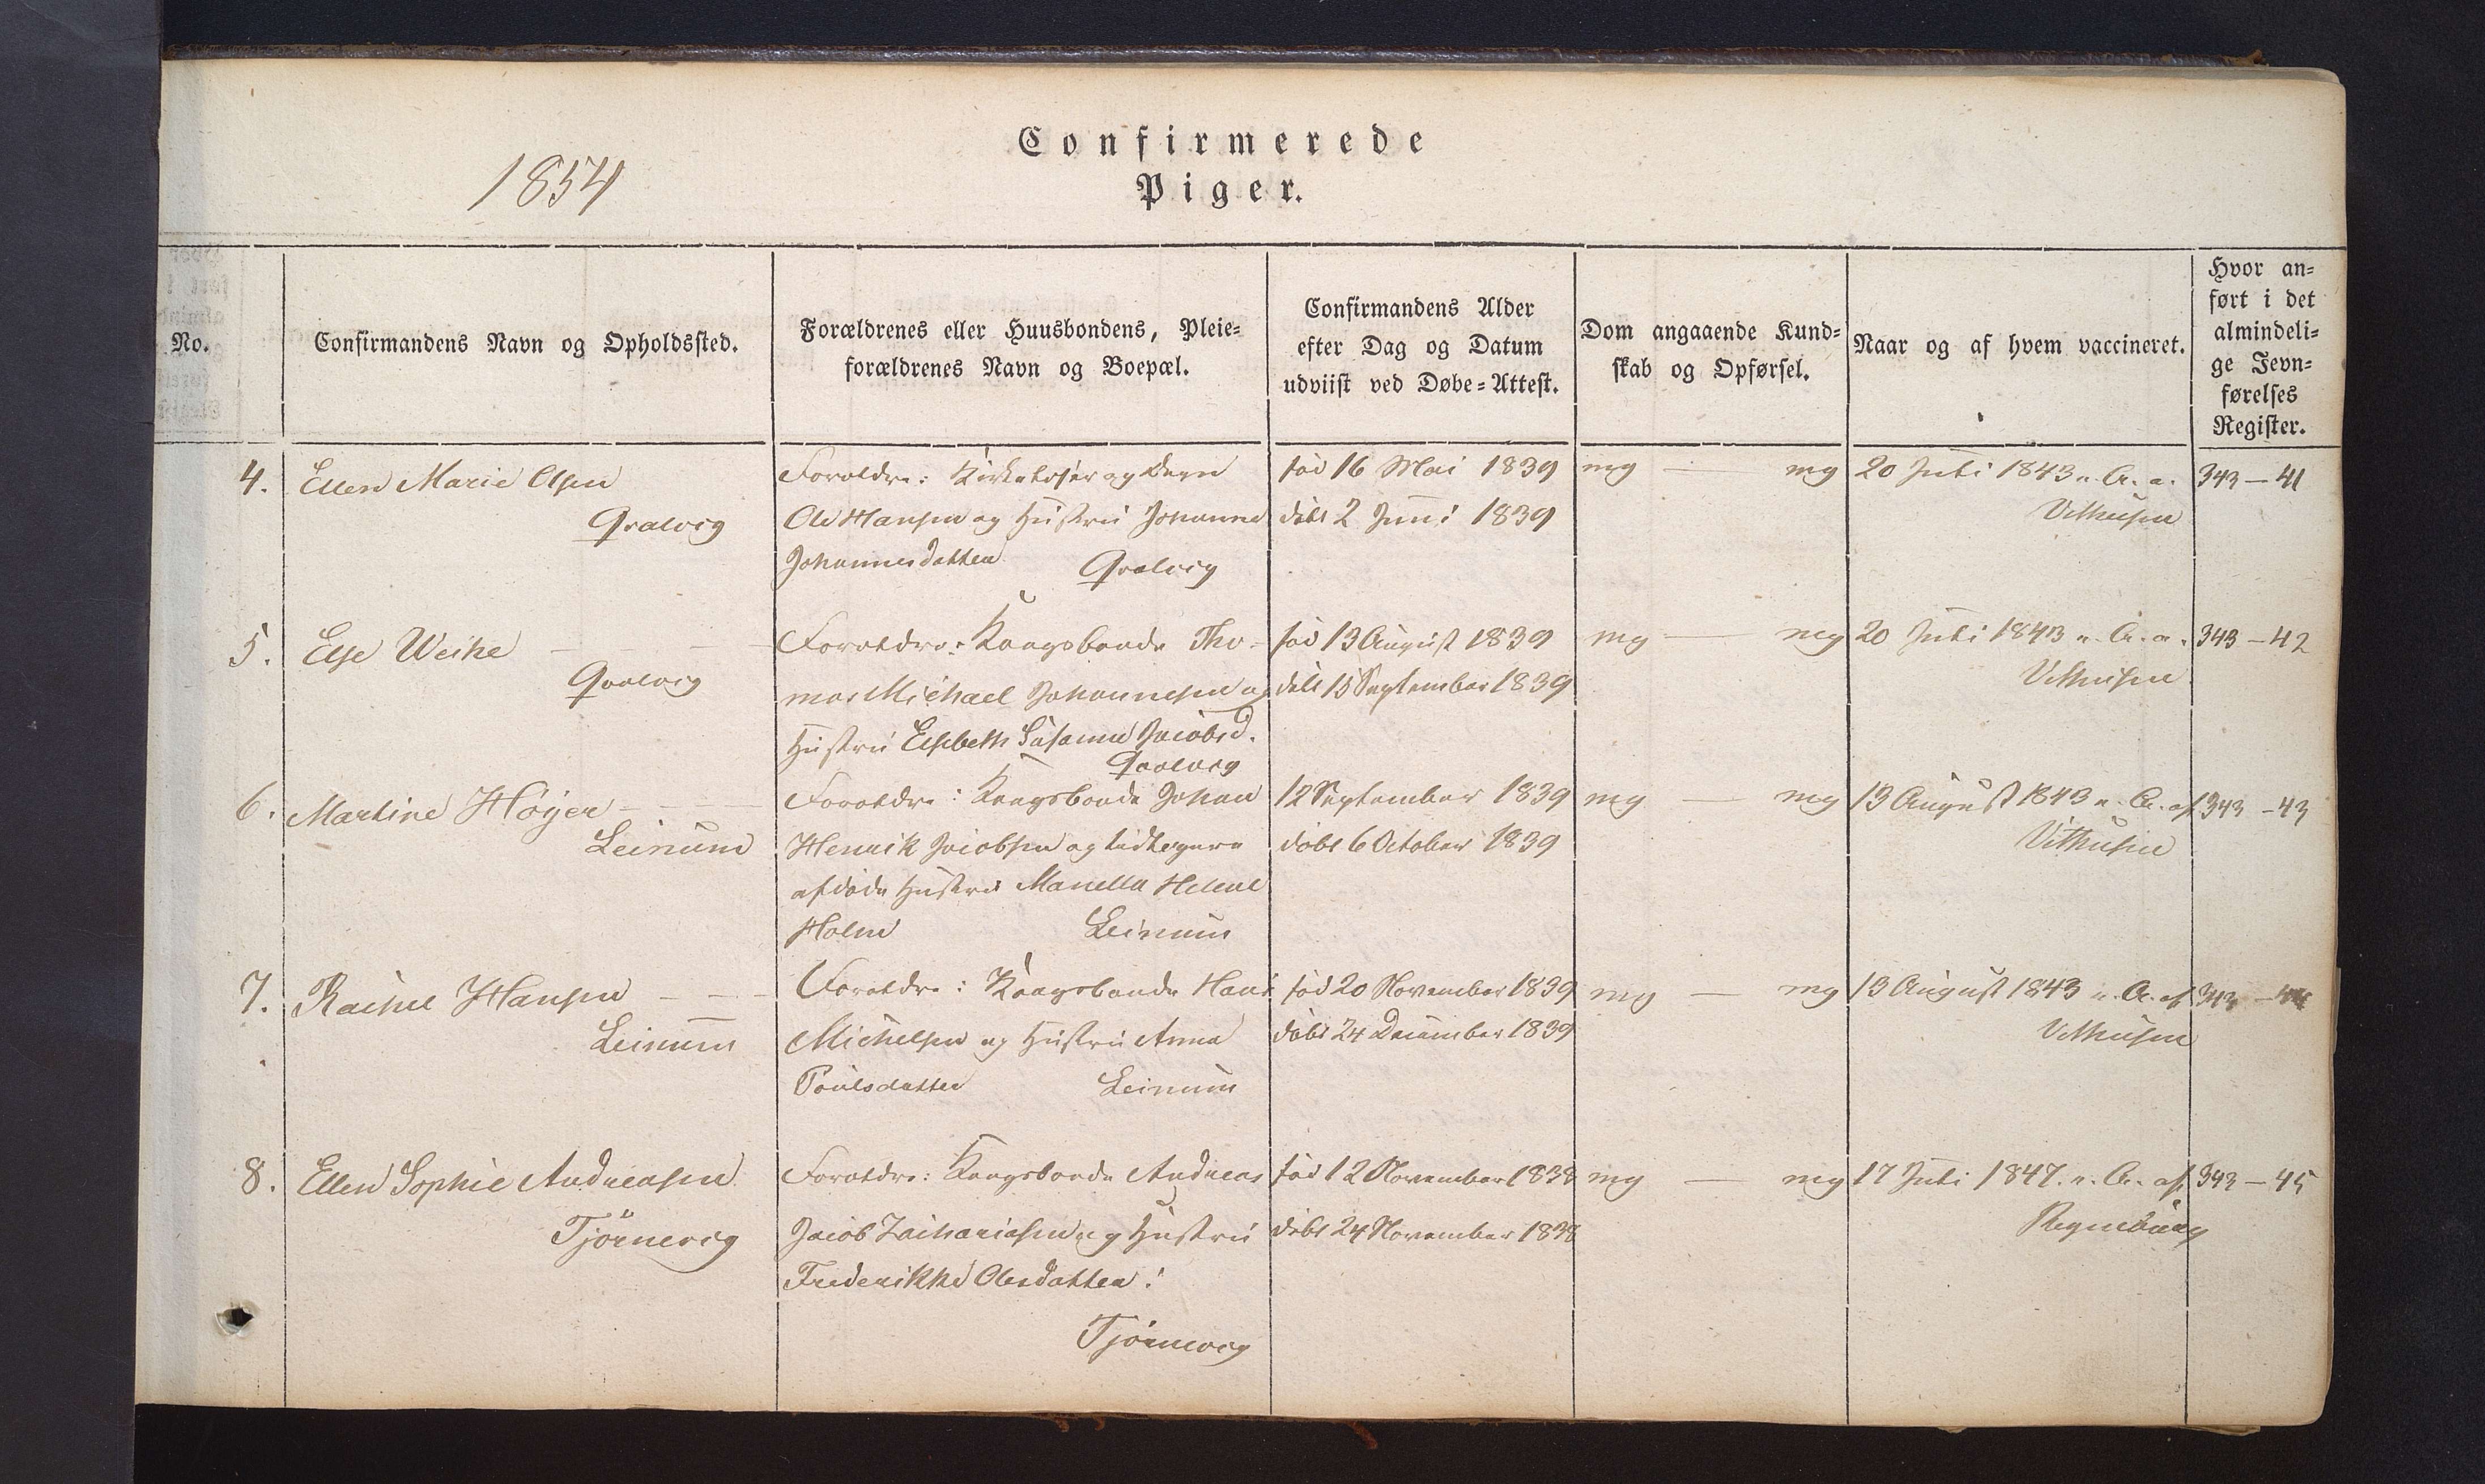 1854
Confirmerede
Piger.
No.
Confirmandens Navn og Opholdssted.
Forældrenes eller Huusbondens, Pleie-
forældrenes Navn og Boepæl.
Confirmandens Alder
efter Dag og Datum
udviist ved Døbe-Attest.
Dom angaaende Kund-
skab og Opførsel.
Naar og af hvem vaccineret.
Hvor an-
ført i det
almindeli-
ge Jevn-
førelses
Register.
4.
Ellen Marie Olsen
Qvalvig
Forældre: og Degn
Ole Hansen og Hustru Johanne
Johannesdatter Qvalvig
fød 16 Mai 1839
døbt 2 Juni 1839
mg — mg
20 Juli 1843 e. A. a.
343 — 41
5.
Else Weihe
Qvalvig
Forældre: Kongsbonde Tho-
mas Michael Johannesen og
Hustru Elsebeth Susanne Jacobsd.
Qvalvig
fød 13 August 1839
døbt 15 September 1839
mg — mg
20 Juli 1843 e. A. a.
343 — 42
6.
Martine Højer
Leinum
Forældre: Kongsbonde Johan
Henrik Jacobsen og
afdøde Hustru Helene
Holm Leinum
12 September 1839
døbt 6 October 1839
mg — mg
13 August 1843 e. A. af
343 — 43
7.
Rachel Hansen
Leinum
Forældre: Kongsbonde Hans
Michelsen og Hustru Anna
Poulsdatter Leinum
fød 20 November 1839
døbt 24 December 1839
mg — mg
13 August 1843 e. A. af
343 — 44
8.
Ellen Sophie Andreasen
Tjørnevig
Forældre: Kongsbonde Andreas
Jacob Zachariasen og Hustru
Frederikke Olesdatter:
Tjørnevig
fød 12 November 1838
døbt 24 November 1838
mg — mg
17 Juli 1847. e. A. af
Regenburg
343 — 45